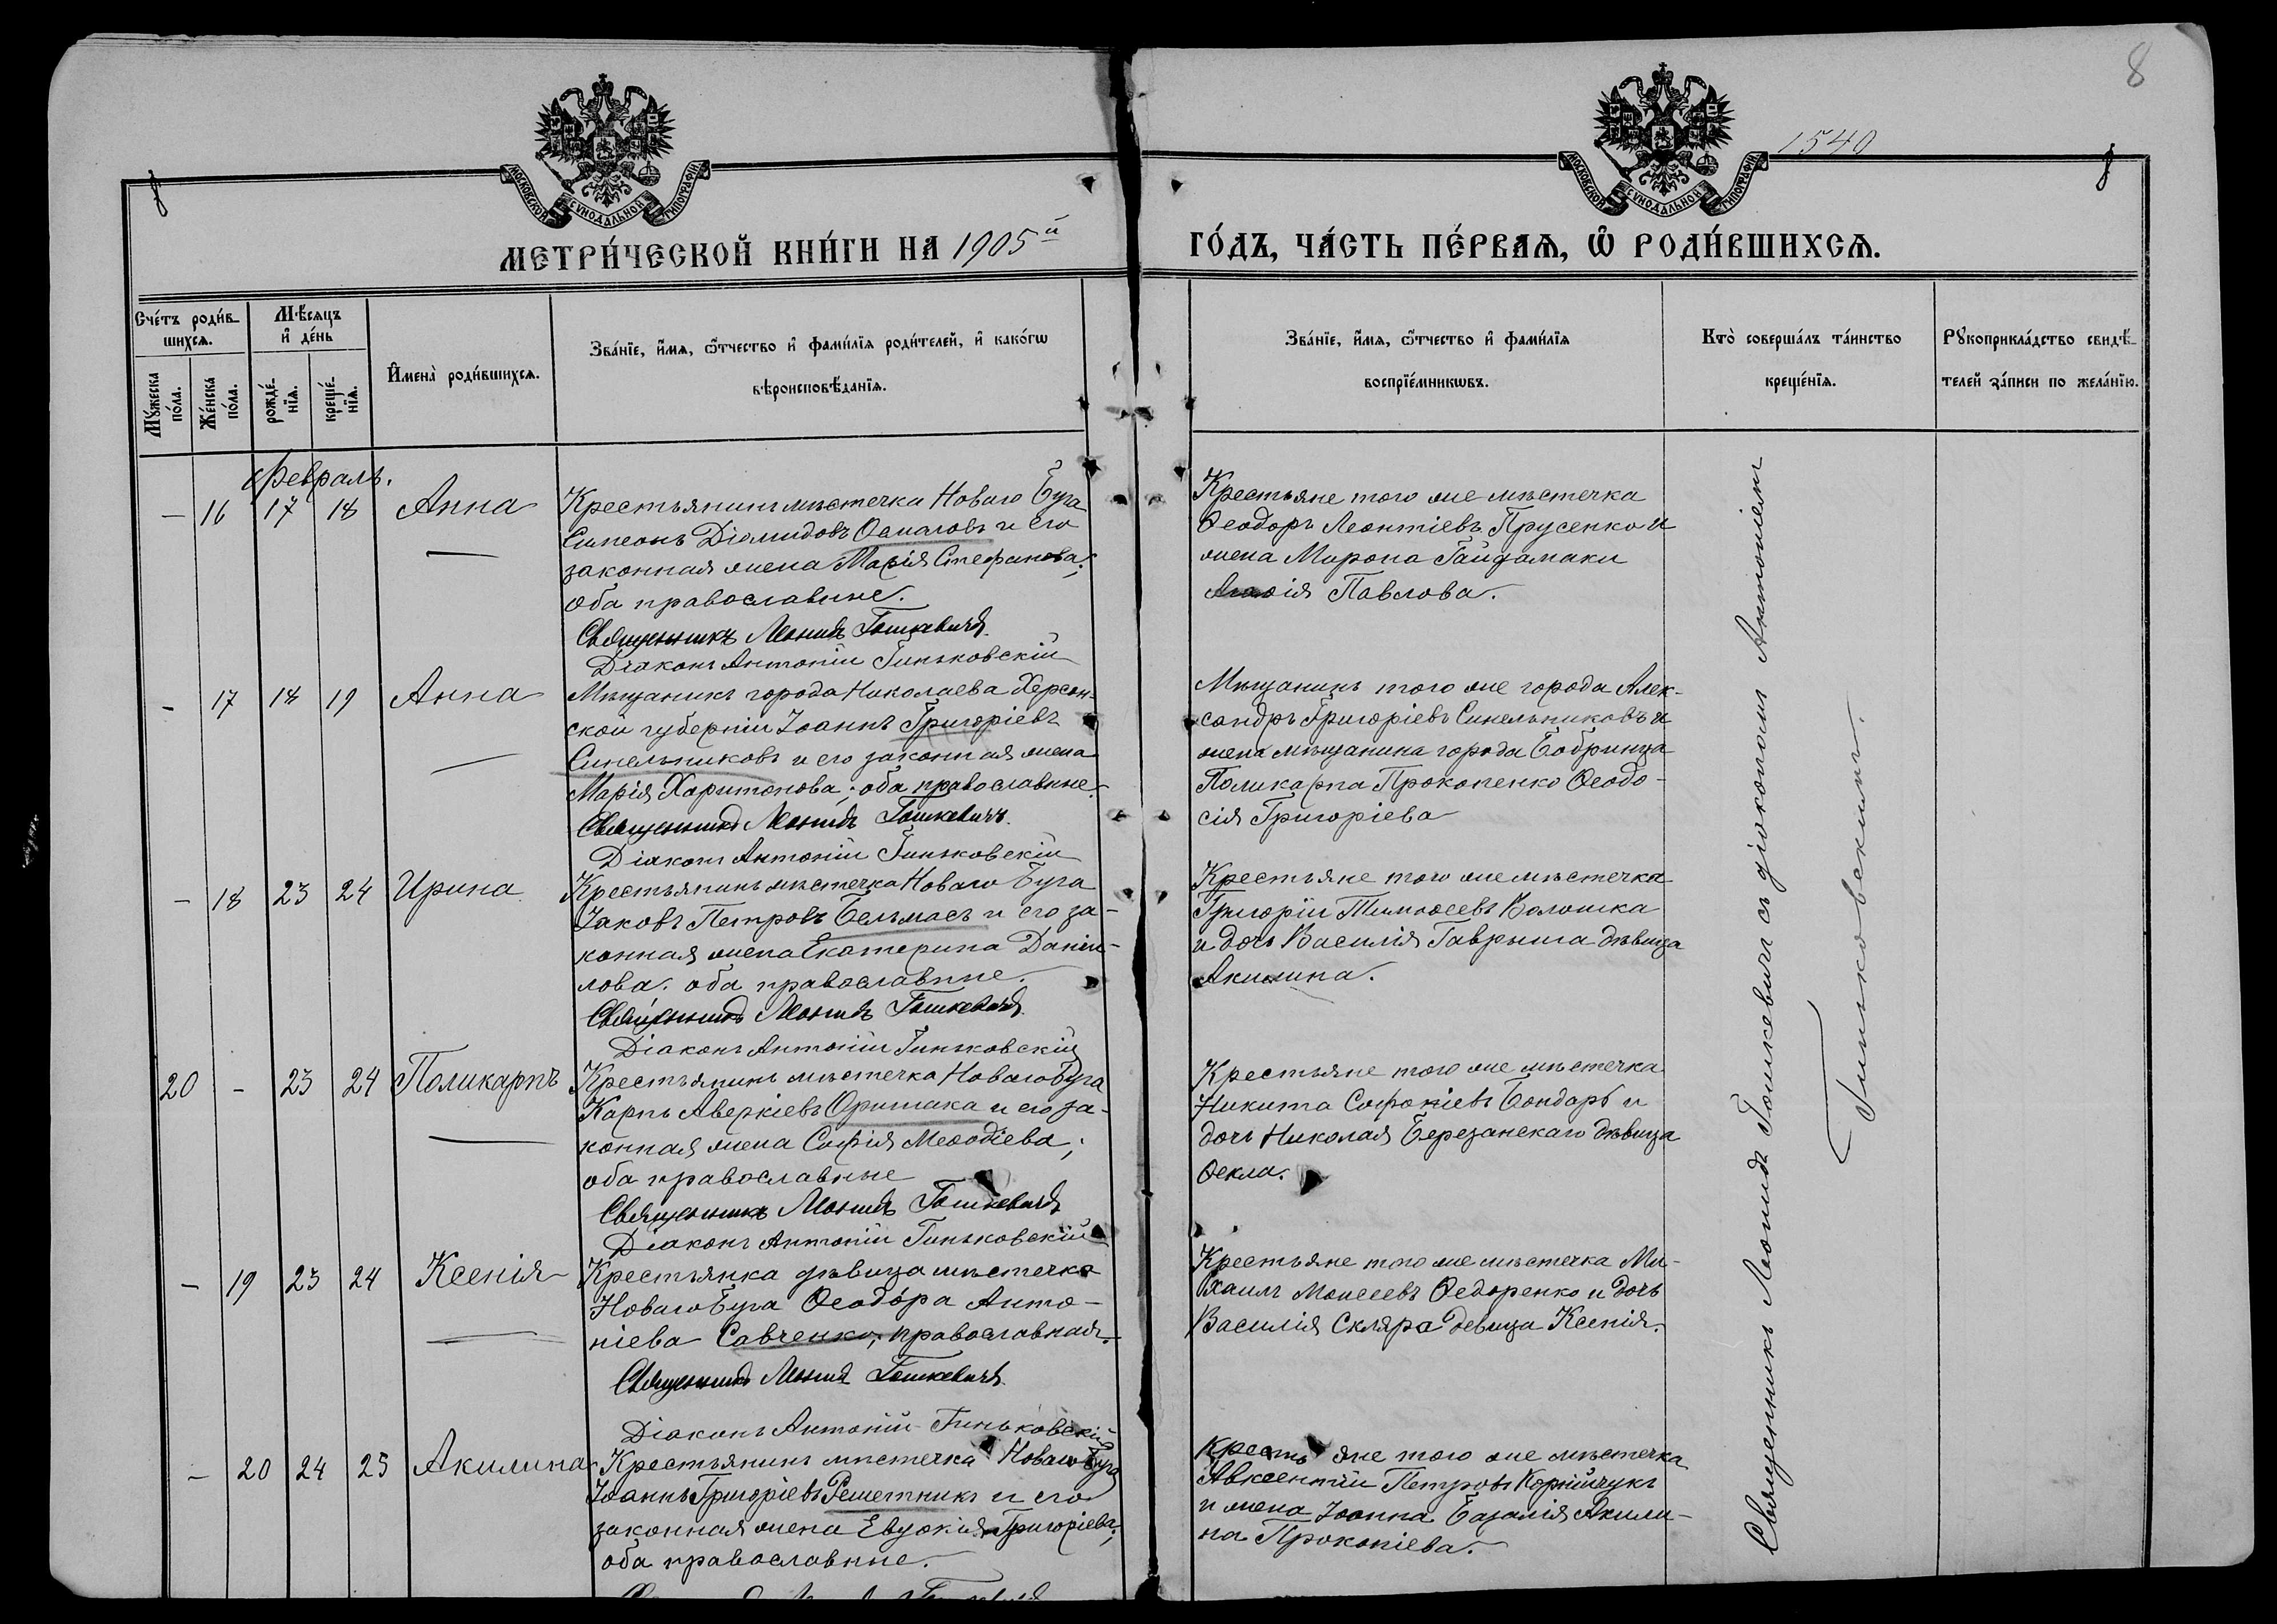 8
1540
МОСКОВСКОЙ СѴНОДАЛЬНОЙ ТИПОГРАФІИ
МОСКОВСКОЙ СѴНОДАЛЬНОЙ ТИПОГРАФІИ
МЕТРИ́ЧЕСКОЙ КНИ́ГИ НА 1905й
ГО́ДЪ, ЧА́СТЬ ПЕ́РВАѦ, Ѽ РОДИ́ВШИХСѦ.
Сче́тъ роди́в-
шихсѧ.
Мѣ́сѧцъ
и҆ де́нь
Мꙋ́жеска
по́ла.
Же́нска
по́ла.
рожде́-
нїѧ.
креще́-
нїѧ.
И҆мена̀ роди́вшихсѧ.
Зва́нїе, и҆́мѧ, ѻ҆́тчество и҆ фами́лїѧ роди́телей, и҆ како́гѡ
вѣроисповѣ́данїѧ.
Зва́нїе, и҆́мѧ, ѻ҆́тчество и҆ фами́лїѧ
воспрїе́мникѡвъ.
Кто̀ соверша́лъ та́инство
креще́нїѧ.
Рꙋкоприкла́дство свидѣ́-
телей за́писи по жела́нїю.
Февраль.
— 16 17 18 Анна
Крестьянинъ мѣстечка Новаго Буга
Симеонъ Діомидовъ и его
законная жена Марія Стефанова;
оба православные.
Священникъ Леонидъ Гошкевичъ
Діаконъ Антоній Гиньковскій
Крестьяне того же мѣстечка
Ѳеодоръ Леонтіевъ Прусенко и
жена Мирона Гайдамаки
Павлова.
- 17 18 19 Анна
Мѣщанинъ города Николаева Херсон-
ской губерніи Іоаннъ Григоріевъ
Синельниковъ и его законная жена
Марія Харитонова; оба православные.
Священникъ Леонидъ Гошкевичъ.
Діаконъ Антоній Гиньковскій
Мѣщанинъ того же города Алек-
сандръ Григоріевъ Синельниковъ и
жена мѣщанина города Бобринца
Поликарпа Прокопенко Ѳеодо-
сія Григоріева
- 18 23 24 Ирина
Крестьянинъ мѣстечка Новаго Буга
Іаковъ Петровъ Бельмасъ и его за-
конная жена Екатерина Даніи-
лова. оба православные.
Священникъ Леонидъ Гошкевичъ
Діаконъ Антоній Гиньковскій
Крестьяне того же мѣстечка
Григорій Тимоѳеевъ Волошка
и дочь Василія Гаврыша дѣвица
Акилина.
20 - 23 24 Поликарпъ
Крестьянинъ мѣстечка Новаго Буга
Карпъ Аверкіевъ Оришака и его за-
конная жена Софія Меѳодіева;
оба православные
Священникъ Леонидъ Гошкевичъ
Діаконъ Антоній Гиньковскій
Крестьяне того же мѣстечка
Никита Софоніевъ Бондарь и
дочь Николая Березанскаго дѣвица
Ѳекла.
- 19 23 24 Ксенія
Крестьянка дѣвица мѣстечка
Новаго Буга Ѳеодора Анто-
ніева Савченко, православная.
Священникъ Леонидъ Гошкевичъ
Діаконъ Антоній Гиньковскій
Крестьяне того же мѣстечка Ми-
хаилъ Моисеевъ Ѳедоренко и дочь
Василія Скляра девица Ксенія.
- 20 24 25 Акилина
Крестьянинъ мѣстечка Новаго Буга
Іоаннъ Григоріевъ Решетникъ и его
законная жена Евдокія Григоріева;
оба православные.
Крестьяне того же мѣстечка
Авксентій Петровъ Корнійчукъ
и жена Іоанна Базалія Акили-
на Прокопіева.
Священникъ Леонидъ Гошкевичъ съ діакономъ Антоніемъ
Гиньковскимъ.